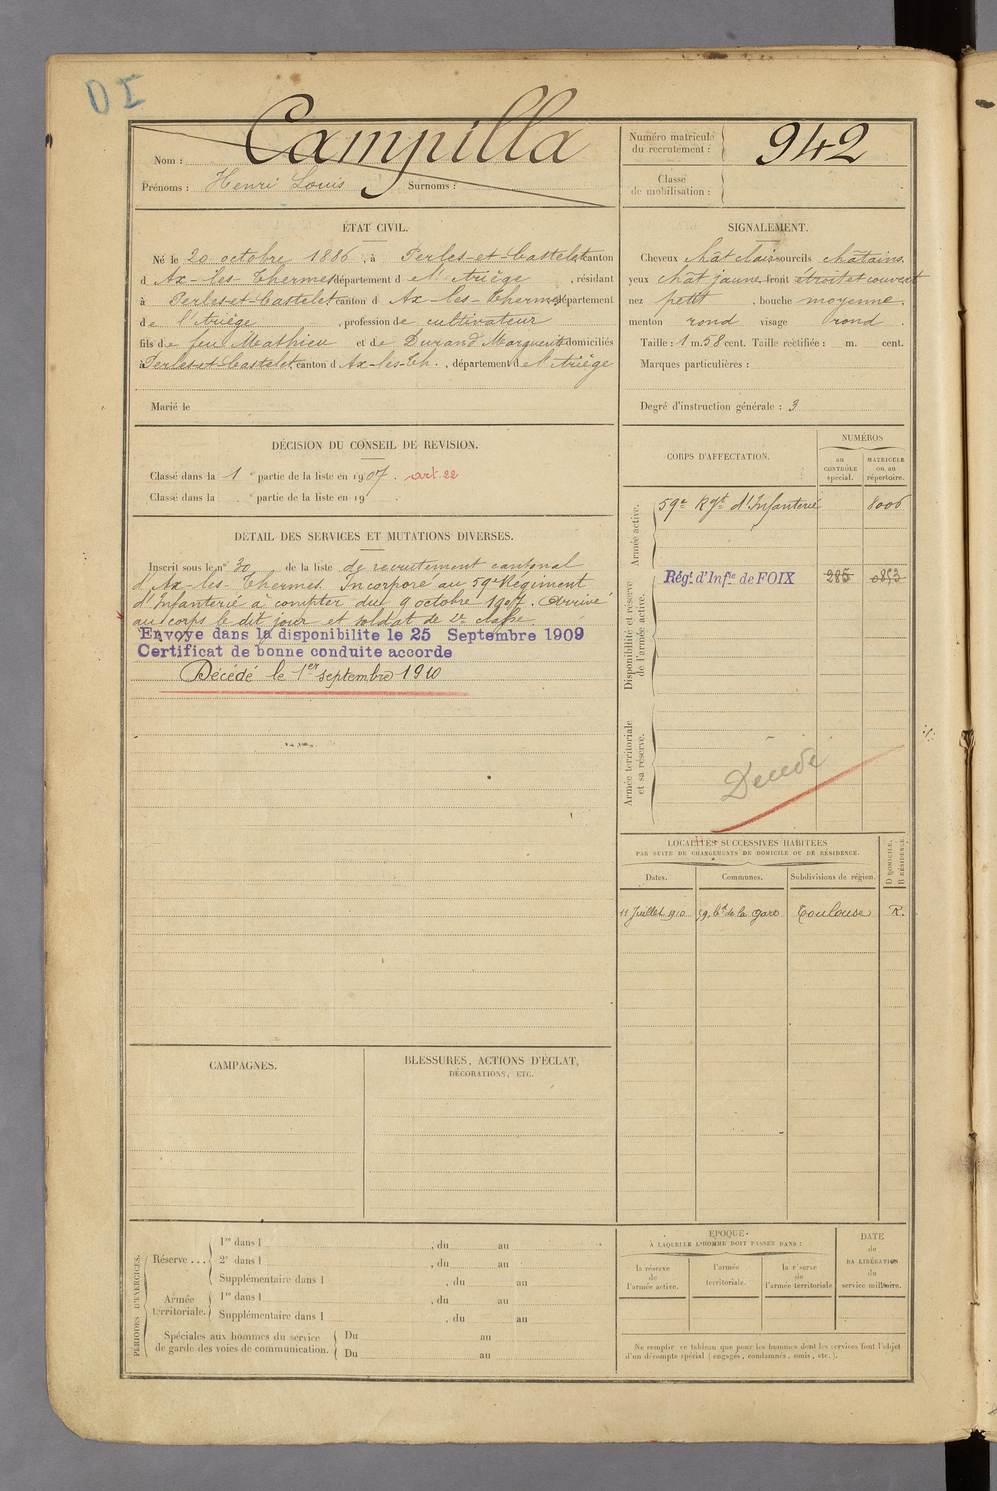 DI
Nom : Campilla
Prénoms : Henri Louis Surnoms :
Numéro matricule du recrutement : 942
Classe de mobilisation :
ÉTAT CIVIL.
Né le 20 octobre 1886, à Perles-et-Castelet canton
d'Ax-les-Thermes département de l'Ariège, résidant
à Perles-et-Castelet canton d'Ax-les-Thermes département
de l'Ariège, profession de cultivateur
fils de feu Mathieu et de Durand Marguerite domiciliés
à Perles-et-Castelet canton d'Ax-les-Th., département de l'Ariège
Marié le
SIGNALEMENT.
Cheveux chat clair sourcils châtains
yeux chat jaune front étroit et couvert
nez petit, bouche moyenne.
menton rond visage rond.
Taille : 1 m. 58 cent. Taille rectifiée : m. cent.
Marques particulières :
Degré d'instruction générale : 3
DÉCISION DU CONSEIL DE REVISION.
Classé dans la 1e partie de la liste en 1907. art. 22
Classé dans la e partie de la liste en 19 .
DÉTAIL DES SERVICES ET MUTATIONS DIVERSES.
Inscrit sous le n° 30 de la liste de recrutement cantonal
d'Ax-les-Thermes. Incorporé au 59e Régiment
d'Infanterie à compter du 9 octobre 1907. Arrivé
au corps le dit jour et soldat de 2e classe.
Envoye dans la disponibilite le 25 Septembre 1909
Certificat de bonne conduite accorde
Décédé le 1er septembre 1910
CORPS D'AFFECTATION.
NUMÉROS
au CONTRÔLE spécial.
MATRICULE ou au répertoire.
Armée active.
59e Rgt d'Infanterie 8006
Disponibilité et réserve de l'armée active.
Régt d'Infie de FOIX 285 0853
Armée territoriale et sa réserve.
Décédé
LOCALITÉS SUCCESSIVES HABITÉES
PAR SUITE DE CHANGEMENTS DE DOMICILE OU DE RÉSIDENCE.
Dates. Communes. Subdivisions de région. D DOMICILE. R RÉSIDENCE.
11 Juillet 1910 59, bd de la Gare Toulouse R.
CAMPAGNES.
BLESSURES, ACTIONS D'ÉCLAT,
DÉCORATIONS, ETC.
PÉRIODES D'EXERCICES.
Réserve...
1re dans l , du au
2e dans l , du au
Supplémentaire dans l , du au
Armée territoriale.
1re dans l , du au
Supplémentaire dans l , du au
Spéciales aux hommes du service
de garde des voies de communication.
Du au
Du au
ÉPOQUE
À LAQUELLE L'HOMME DOIT PASSER DANS :
la réserve de l'armée active.
l'armée territoriale.
la réserve de l'armée territoriale
DATE de LA LIBÉRATION du service militaire.
Ne remplir ce tableau que pour les hommes dont les services font l'objet
d'un décompte spécial (engagés, condamnés, omis, etc.).